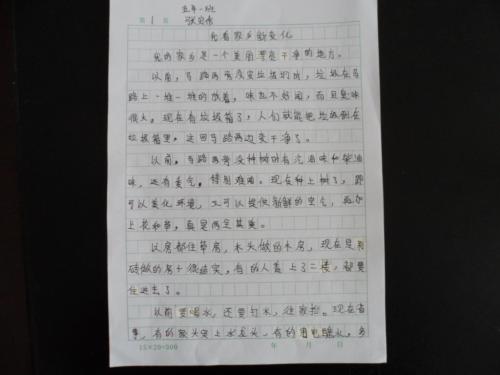 五年一班
第 1 页
我看家乡新变化
我的家乡是一个美丽干净的地方。
以前,马路两旁应实垃圾的,垃圾在马
路上一堆一堆的放着,味也不好闻,而且臭味
很大。现在有垃圾箱了,人们就能把垃圾倒在
垃圾箱里,这回马路两边变干净了。
以前,马路两旁没种树时有汽油味和柴油
味,还有尾气,特别难闻。现在种上树了,即
可以美化环境,又可以提供新鲜的空气,再加
上花和草,真是两全其美。
以前都住草房,木头做的木房,现在是用
砖做的房子很结实,有的人盖上了二楼,都要
住进去了。
以前要喝水,还要打水,往家抬。现在省
事,有的家头安上水龙头,有的用电
15×20=300
年 月 日